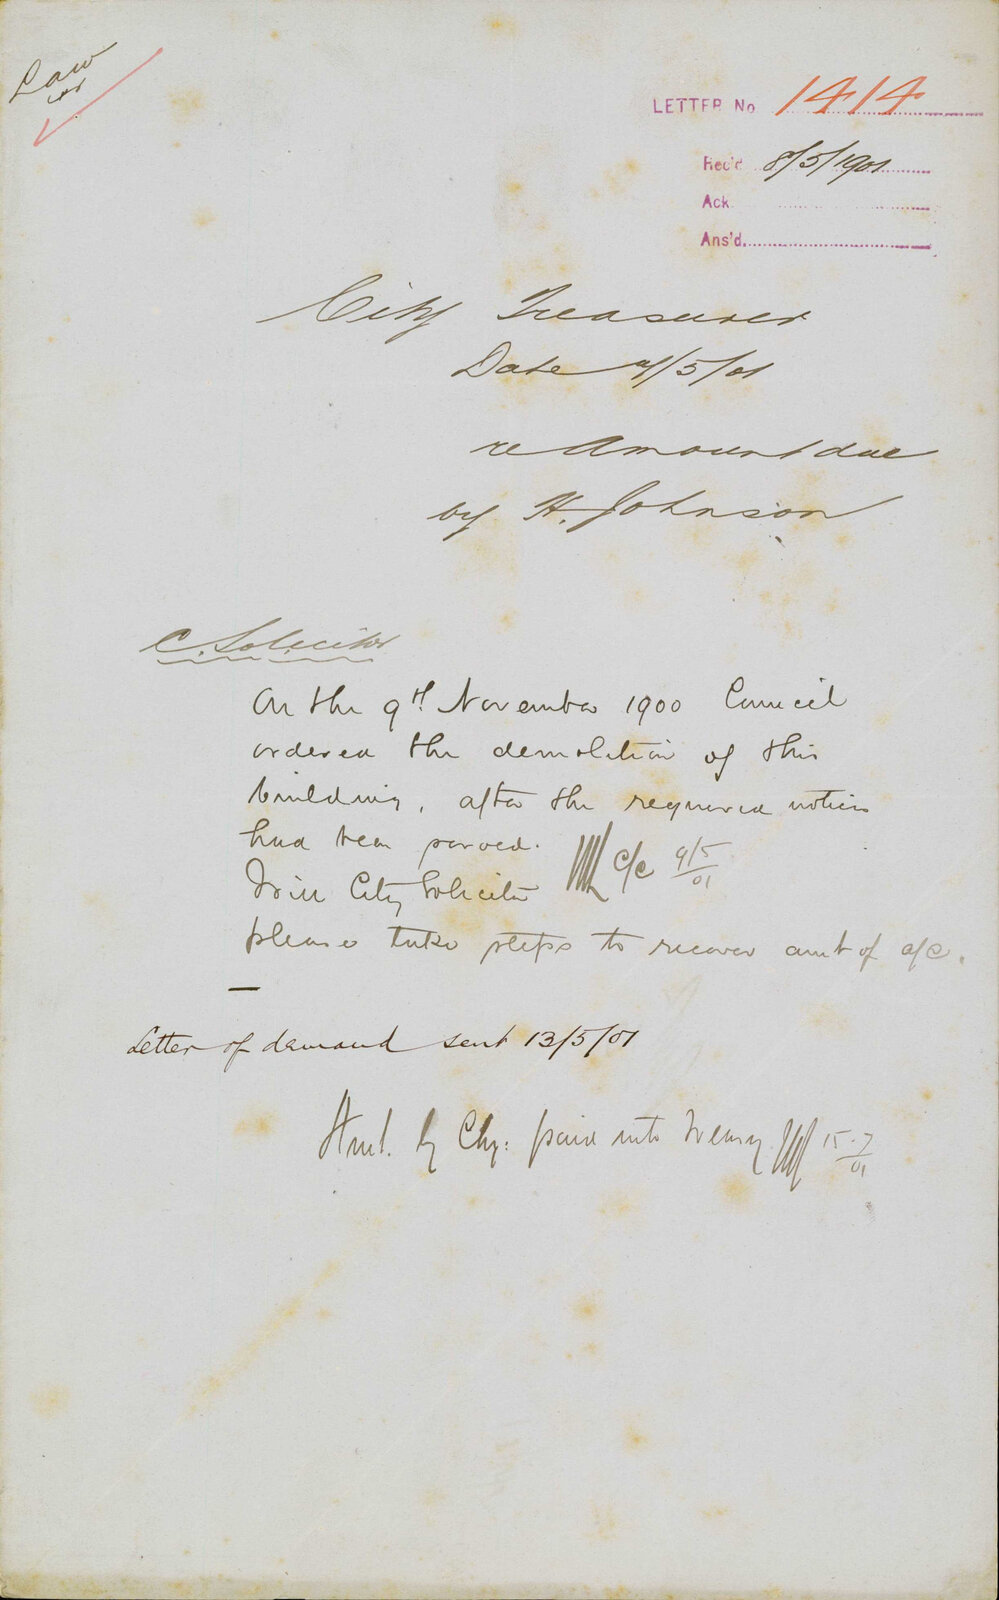 Law
LETTER No 1414
Rec'd 8/5/1901
Ack
Ans'd
City Treasurer
Date 7/5/01
re Amount due
by H. Johnson
C. Solicitor
On the 9th November 1900 Council
ordered the demolition of this
building, after the required notices
had been served.
c/c 9/5/01
Will City Solicitor
please take steps to recover amt of a/c.
Letter of demand sent 13/5/01
Amt. by Chq: paid into Treasy 15.7/01